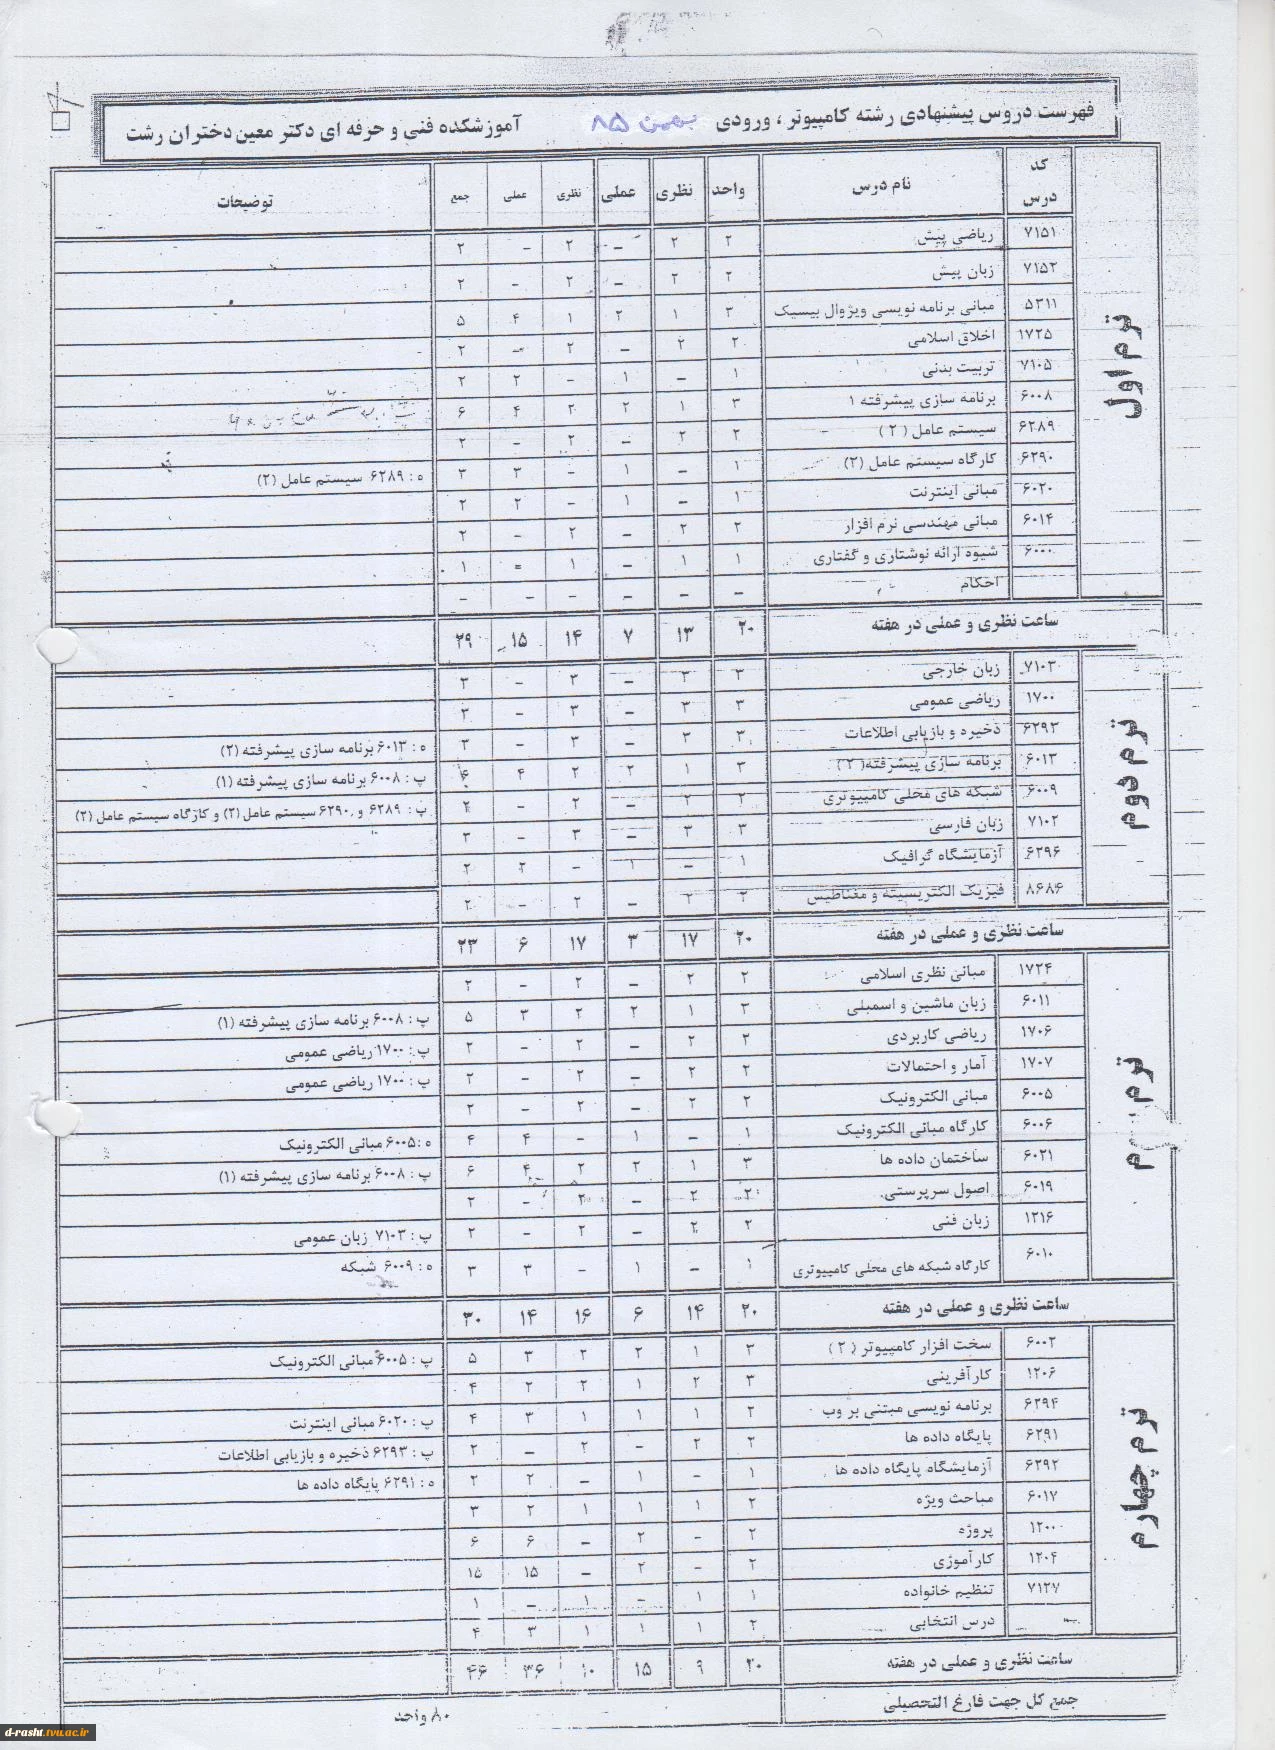 فهرست دروس پیشنهادی رشته کامپیوتر ، ورودی بهمن ۸۵ آموزشکده فنی و حرفه ای دکتر معین دختران رشت
کد درس نام درس واحد نظری عملی نظری عملی جمع توضیحات
ترم اول
۷۱۵۱ ریاضی پیش ۲ ۲ – ۲ – ۲
۷۱۵۲ زبان پیش ۲ ۲ – ۲ – ۲
۵۳۱۱ مبانی برنامه نویسی ویژوال بیسیک ۳ ۱ ۲ ۱ ۴ ۵
۱۷۲۵ اخلاق اسلامی ۲ ۲ – ۲ – ۲
۷۱۰۵ تربیت بدنی ۱ – ۱ – ۲ ۲
۶۰۰۸ برنامه سازی پیشرفته ۱ ۳ ۱ ۲ ۲ ۴ ۶
۶۲۸۹ سیستم عامل ( ۲ ) ۲ ۲ – ۲ – ۲
۶۲۹۰ کارگاه سیستم عامل (۲) ۱ – ۱ – ۳ ۳ ه : ۶۲۸۹ سیستم عامل (۲)
۶۰۲۰ مبانی اینترنت ۱ – ۱ – ۲ ۲
۶۰۱۴ مبانی مهندسی نرم افزار ۲ ۲ – ۲ – ۲
۶۰۰۰ شیوه ارائه نوشتاری و گفتاری ۱ ۱ – ۱ = ۱
احکام – – – – – –
ساعت نظری و عملی در هفته ۲۰ ۱۳ ۷ ۱۴ ۱۵ ۲۹
ترم دوم
۷۱۰۳ زبان خارجی ۳ ۳ – ۳ – ۳
۱۷۰۰ ریاضی عمومی ۳ ۳ – ۳ – ۳
۶۲۹۳ ذخیره و بازیابی اطلاعات ۳ ۳ – ۳ – ۳ ه : ۶۰۱۳ برنامه سازی پیشرفته (۲)
۶۰۱۳ برنامه سازی پیشرفته( ۲ ) ۳ ۱ ۲ ۲ ۴ ۶ پ : ۶۰۰۸ برنامه سازی پیشرفته (۱)
۶۰۰۹ شبکه های محلی کامپیوتری ۲ ۲ – ۲ – ۲ پ : ۶۲۸۹ و ۶۲۹۰ سیستم عامل (۲) و کارگاه سیستم عامل (۲)
۷۱۰۲ زبان فارسی ۳ ۳ – ۳ – ۳
۶۲۹۶ آزمایشگاه گرافیک ۱ – ۱ – ۲ ۲
۸۶۸۶ فیزیک الکتریسیته و مغناطیس ۲ ۲ – ۲ – ۲
ساعت نظری و عملی در هفته ۲۰ ۱۷ ۳ ۱۷ ۶ ۲۳
ترم م
۱۷۲۴ مبانی نظری اسلامی ۲ ۲ – ۲ – ۲
۶۰۱۱ زبان ماشین و اسمبلی ۳ ۱ ۲ ۲ ۳ ۵ پ : ۶۰۰۸ برنامه سازی پیشرفته (۱)
۱۷۰۶ ریاضی کاربردی ۲ ۲ – ۲ – ۲ پ : ۱۷۰۰ ریاضی عمومی
۱۷۰۷ آمار و احتمالات ۲ ۲ – ۲ – ۲ پ : ۱۷۰۰ ریاضی عمومی
۶۰۰۵ مبانی الکترونیک ۲ ۲ – ۲ – ۲
۶۰۰۶ کارگاه مبانی الکترونیک ۱ – ۱ – ۴ ۴ ه :۶۰۰۵ مبانی الکترونیک
۶۰۲۱ ساختمان داده ها ۳ ۱ ۲ ۲ ۴ ۶ پ : ۶۰۰۸ برنامه سازی پیشرفته (۱)
۶۰۱۹ اصول سرپرستی ۲ ۲ – ۲ – ۲
۱۲۱۶ زبان فنی ۲ ۲ – ۲ – ۲ پ : ۷۱۰۳ زبان عمومی
۶۰۱۰ کارگاه شبکه های محلی کامپیوتری ۱ – ۱ – ۳ ۳ ه : ۶۰۰۹ شبکه
ساعت نظری و عملی در هفته ۲۰ ۱۴ ۶ ۱۶ ۱۴ ۳۰
ترم چهارم
۶۰۰۲ سخت افزار کامپیوتر ( ۲ ) ۳ ۱ ۲ ۲ ۳ ۵ پ : ۶۰۰۵ مبانی الکترونیک
۱۲۰۶ کارآفرینی ۳ ۲ ۱ ۲ ۲ ۴
۶۲۹۴ برنامه نویسی مبتنی بر وب ۲ ۱ ۱ ۱ ۳ ۴ پ : ۶۰۲۰ مبانی اینترنت
۶۲۹۱ پایگاه داده ها ۲ ۲ – ۲ – ۲ پ : ۶۲۹۳ ذخیره و بازیابی اطلاعات
۶۲۹۲ آزمایشگاه پایگاه داده ها ۱ – ۱ – ۲ ۲ ه : ۶۲۹۱ پایگاه داده ها
۶۰۱۷ مباحث ویژه ۲ ۱ ۱ ۱ ۲ ۳
۱۲۰۰ پروژه ۲ – ۲ – ۶ ۶
۱۲۰۴ کارآموزی ۲ – ۲ – ۱۵ ۱۵
۷۱۲۷ تنظیم خانواده ۱ ۱ – ۱ – ۱
درس انتخابی ۲ ۱ ۱ ۱ ۳ ۴
ساعت نظری و عملی در هفته ۲۰ ۹ ۱۵ ۱۰ ۳۶ ۴۶
جمع کل جهت فارغ التحصیلی ۸۰ واحد
d-rasht.tvu.ac.ir